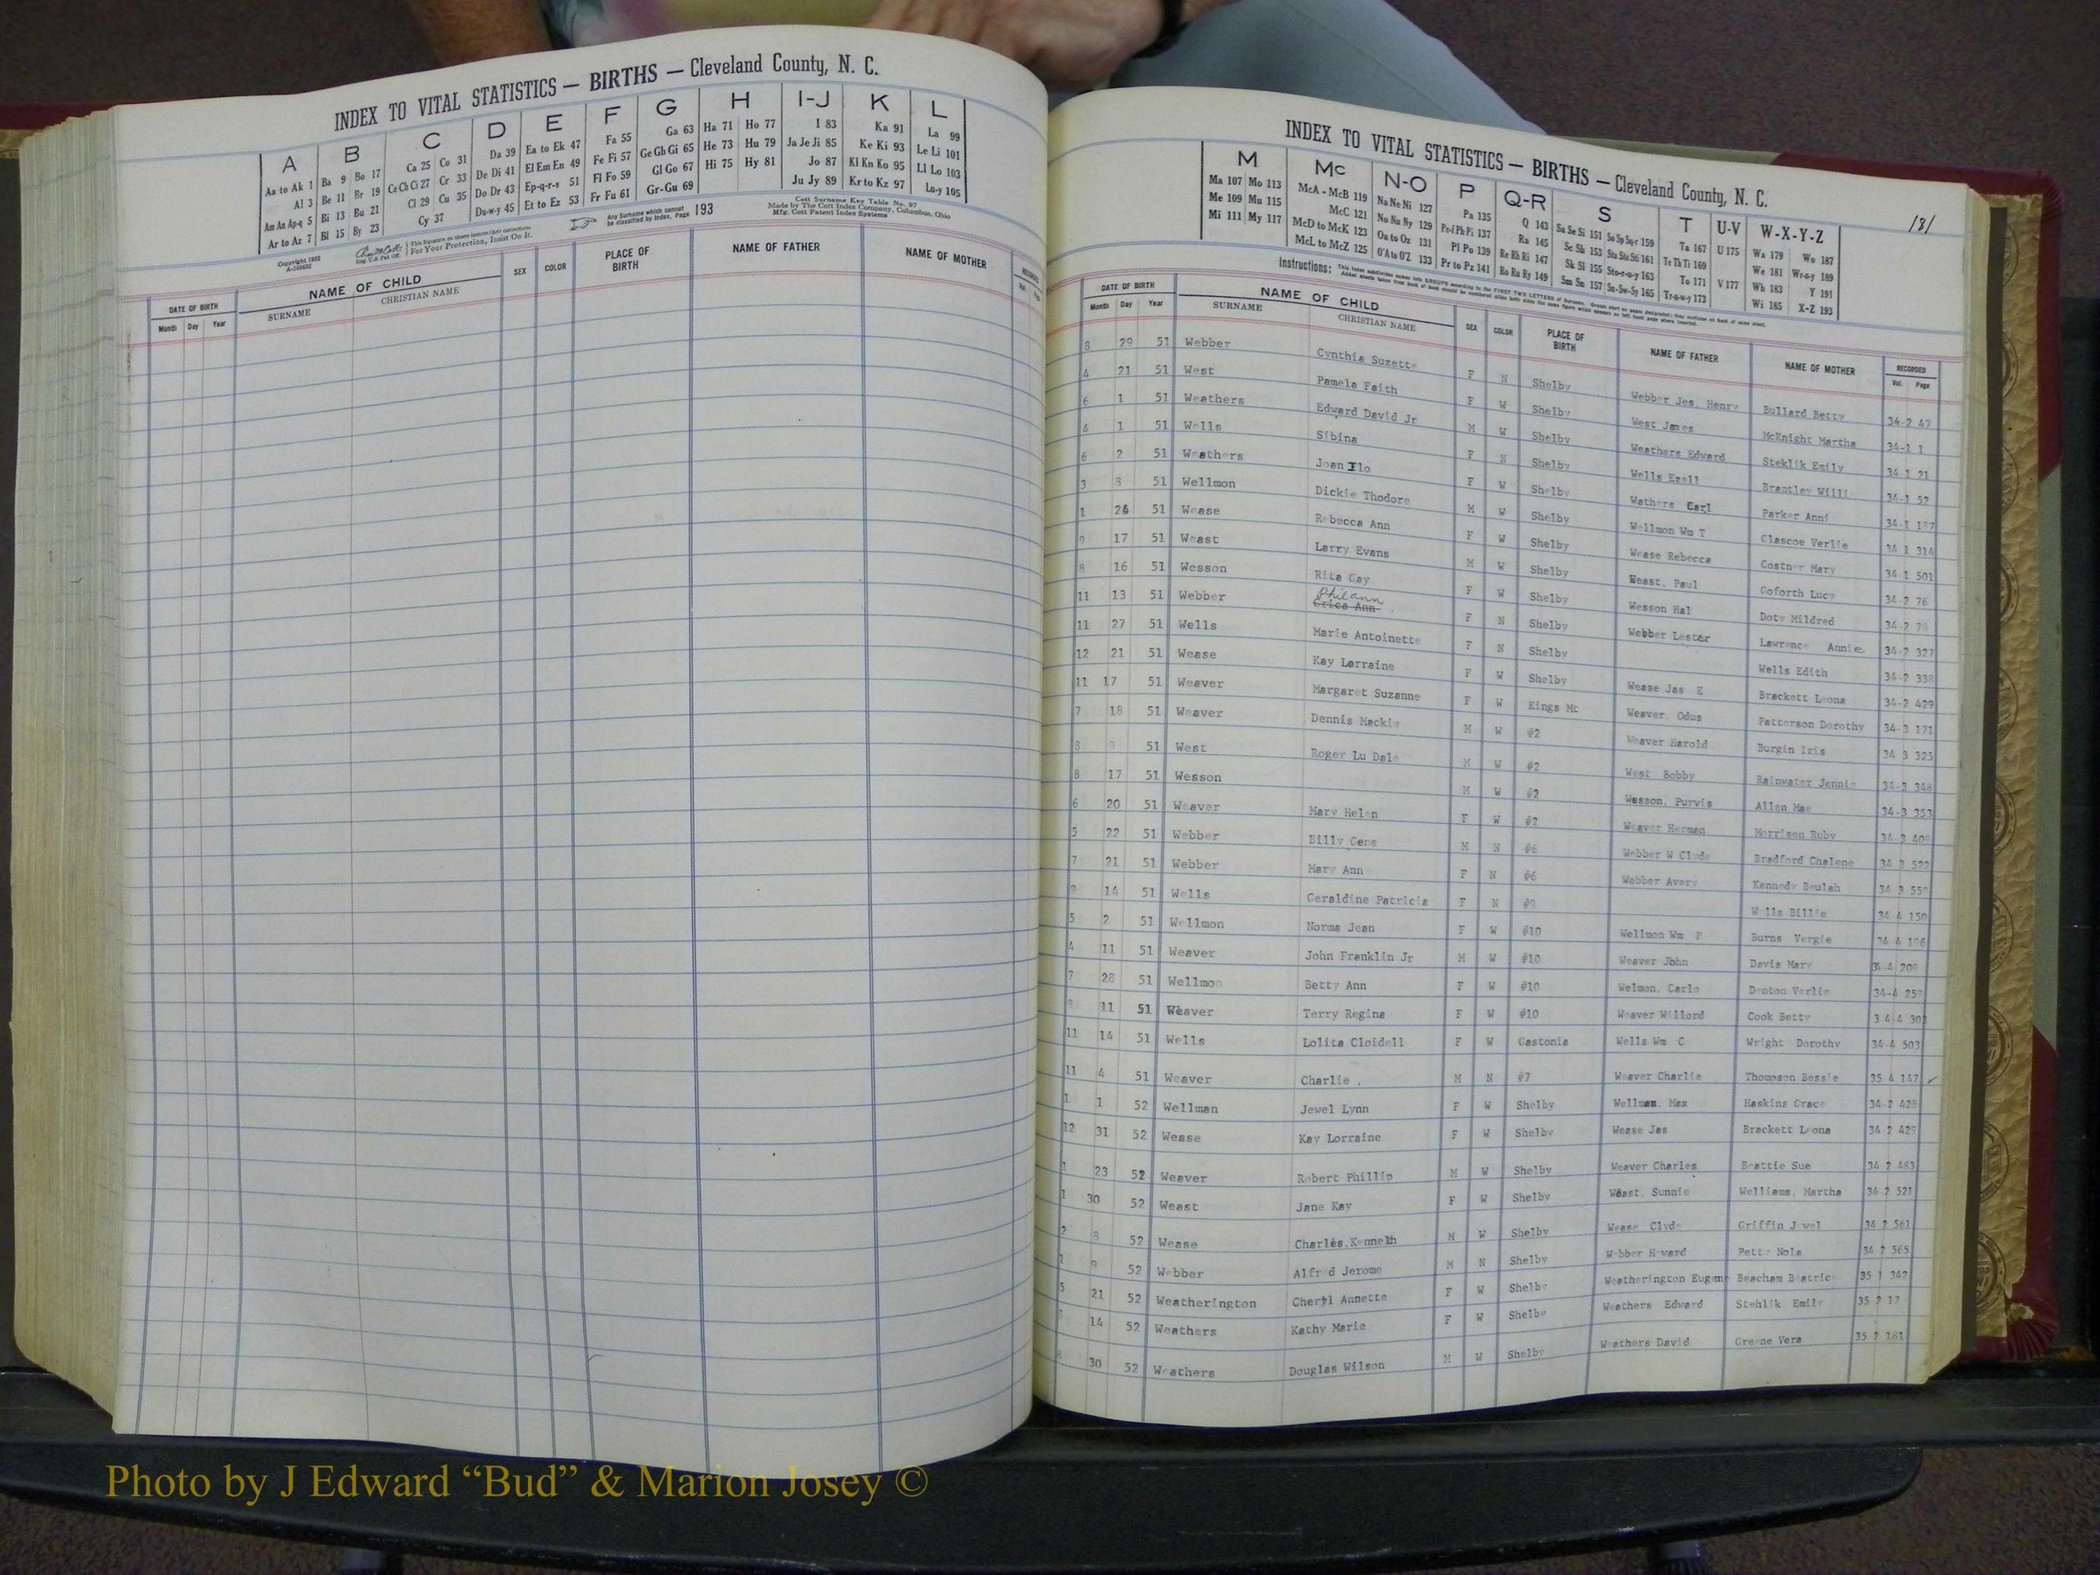 INDEX TO VITAL STATISTICS — BIRTHS — Cleveland County, N. C.
A B C D E F G H I-J K L
Aa to Ak 1 Ba 9 Bo 17 Ca 25 Co 31 Da 39 Ea to Ek 47 Fa 55 Ga 63 Ha 71 Ho 77 I 83 Ka 91 La 99
Al 3 Be 11 Br 19 Ce Ch Ci 27 Cr 33 De Di 41 El Em En 49 Fe Fi 57 Ge Gh Gi 65 He 73 Hu 79 Ja Je Ji 85 Ke Ki 93 Le Li 101
Am An Ap-q 5 Bi 13 Bu 21 Cl 29 Cu 35 Do Dr 43 Ep-q-r-s 51 Fl Fo 59 Gl Go 67 Hi 75 Hy 81 Jo 87 Kl Kn Ko 95 Ll Lo 103
Ar to Az 7 Bl 15 By 23 Cy 37 Du-w-y 45 Et to Ez 53 Fr Fu 61 Gr-Gu 69 Ju Jy 89 Kr to Kz 97 Lu-y 105
Copyright 1932
A-105632
Reg. U.S. Pat. Off.
This Signature on sheets insures their correctness.
For Your Protection, Insist On It.
Any Surname which cannot be classified by Index, Page 193
Cott Surname Key Table No. 97
Made by The Cott Index Company, Columbus, Ohio
Mfg. Cott Patent Index Systems
DATE OF BIRTH NAME OF CHILD SEX COLOR PLACE OF BIRTH NAME OF FATHER NAME OF MOTHER
Month Day Year SURNAME CHRISTIAN NAME
181
INDEX TO VITAL STATISTICS — BIRTHS — Cleveland County, N. C.
M Mc N-O P Q-R S T U-V W-X-Y-Z
Ma 107 Mo 113 McA - McB 119 Na Ne Ni 127 Pa 135 Q 143 Sa Se Si 151 So Sp Sq-r 159 Ta 167 U 175 Wa 179 Wo 187
Me 109 Mu 115 McC 121 No Nu Ny 129 Pe-f Ph Pi 137 Ra 145 Sc Sh 153 Sta Ste Sti 161 Te Th Ti 169 We 181 Wr-u-y 189
Mi 111 My 117 McD to McK 123 Oa to Oz 131 Pl Po 139 Re Rh Ri 147 Sk Sl 155 Sto-r-u-y 163 To 171 V 177 Wh 183 Y 191
McL to McZ 125 O'A to O'Z 133 Pr to Pz 141 Ro Ru Ry 149 Sm Sn 157 Su-Sw-Sy 165 Tr-u-w-y 173 Wi 185 X-Z 193
Instructions:
DATE OF BIRTH NAME OF CHILD SEX COLOR PLACE OF BIRTH NAME OF FATHER NAME OF MOTHER RECORDED
Month Day Year SURNAME CHRISTIAN NAME Vol. Page
8 29 51 Webber Cynthia Suzette F N Shelby Webber Jes. Henry Bullard Betty 34-2 47
4 21 51 West Pamela Faith F W Shelby West James McKnight Martha 34-1 1
6 1 51 Weathers Edward David Jr M W Shelby Weathers Edward Steklik Emily 34 1 21
4 1 51 Wells Sibina F N Shelby Wells Ezell Brantley Willi 34-1 52
6 2 51 Weathers Joan Ilo F W Shelby Wathers Earl Parker Anni 34-1 187
3 8 51 Wellmon Dickie Thodore M W Shelby Wellmon Wm T Glascoe Verlie 34 1 314
1 26 51 Wease Rebecca Ann F W Shelby Wease Rebecca Costner Mary 34-1 501
9 17 51 Weast Larry Evans M W Shelby Weast. Paul Goforth Lucy 34-2 76
8 16 51 Wesson Rita Gay F W Shelby Wesson Hal Doty Mildred 34-2 78
11 13 51 Webber Philann Grica Ann F N Shelby Webber Lester Lawrence Annie 34-2 327
11 27 51 Wells Marie Antoinette F N Shelby Wells Edith 34-2 338
12 21 51 Wease Kay Lorraine F W Shelby Wease Jas E Brackett Leona 34-2 429
11 17 51 Weaver Margaret Suzanne F W Kings Mt Weaver Odus Patterson Dorothy 34-3 171
7 18 51 Weaver Dennis Mackie M W #2 Weaver Harold Burgin Iris 34 3 325
8 9 51 West Roger Lu Dale M W #2 West Bobby Rainwater Jennie 34-3 348
8 17 51 Wesson M W #2 Wesson, Purvis Allen Mae 34-3 353
6 20 51 Weaver Mary Helen F W #2 Weaver Herman Morrison Ruby 34-3 409
5 22 51 Webber Billy Gene M N #6 Webber W Clyde Bradford Chalene 34 3 522
7 21 51 Webber Mary Ann F N #6 Webber Avery Kennedy Beulah 34 3 559
9 14 51 Wells Geraldine Patricia F N #9 Wells Billie 34 4 150
5 2 51 Wellmon Norma Jean F W #10 Wellmon Wm F Burns Vergie 34 4 196
4 11 51 Weaver John Franklin Jr M W #10 Weaver John Davis Mary 34-4 209
7 28 51 Wellmon Betty Ann F W #10 Welmon. Carlo Denton Verlie 34-4 259
9 11 51 Weaver Terry Regina F W #10 Weaver Willord Cook Betty 3 4-4 303
11 14 51 Wells Lolita Cloidell F W Gastonia Wells Wm C Wright Dorothy 34-4 503
11 4 51 Weaver Charlie . M N #7 Weaver Charlie Thompson Bessie 35 4 147 ✓
1 1 52 Wellman Jewel Lynn F W Shelby Wellman. Max Haskins Grace 34-2 428
12 31 52 Wease Kay Lorraine F W Shelby Wease Jas Brackett Leona 34 2 429
1 23 52 Weaver Robert Phillip M W Shelby Weaver Charles Beattie Sue 34 2 483
1 30 52 Weast Jane Kay F W Shelby Weast. Sunnie Welliams. Martha 34-2 521
2 8 52 Wease Charles.Kenneth M W Shelby Wease Clyde Griffin Jewel 34 2 561
1 9 52 Webber Alfred Jerome M N Shelby Webber Howard Petty Nola 34-2 565
5 21 52 Weatherington Cheryl Annette F W Shelby Weatherington Eugene Beacham Beatrice 35 1 342
14 52 Weathers Kathy Marie F W Shelby Weathers Edward Stehlik Emily 35 2 17
8 30 52 Weathers Douglas Wilson M W Shelby Weathers David Greene Vera 35 2 181
Photo by J Edward “Bud” & Marion Josey ©